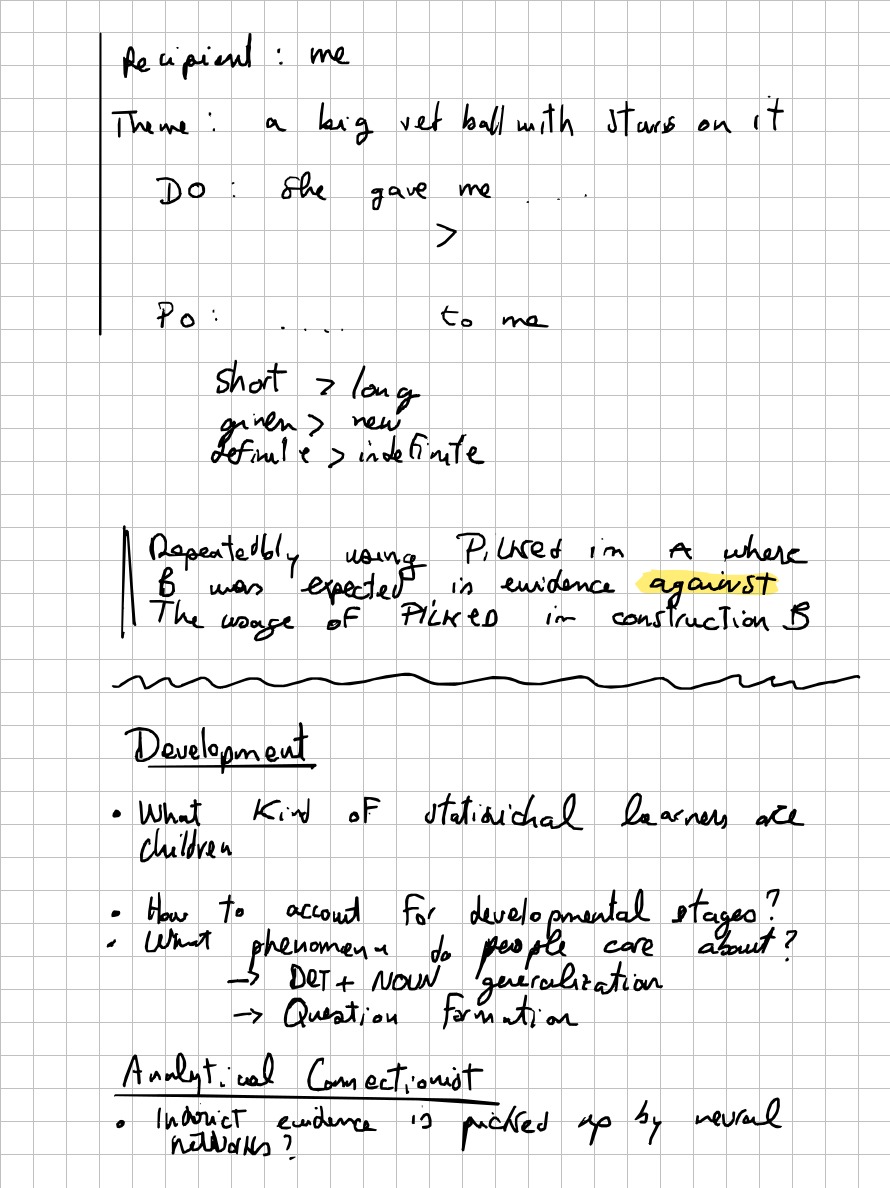 Recipient : me
Theme : a big ret ball with stars on it
DO : She gave me . . . .
>
PO : . . . . . to me
short > long
given > new
definite > indefinite
Repeatedbly using PILKED in A where
B was expected is evidence against
The usage of PILKED in construction B
Development
• What Kind of statisichal learners are
children
• How to account for developmental stages?
• What phenomena do people care about?
→ DET + NOUN generalization
→ Question formation
Analytical Connectionist
• Indirict evidence is picked up by neural
networks?